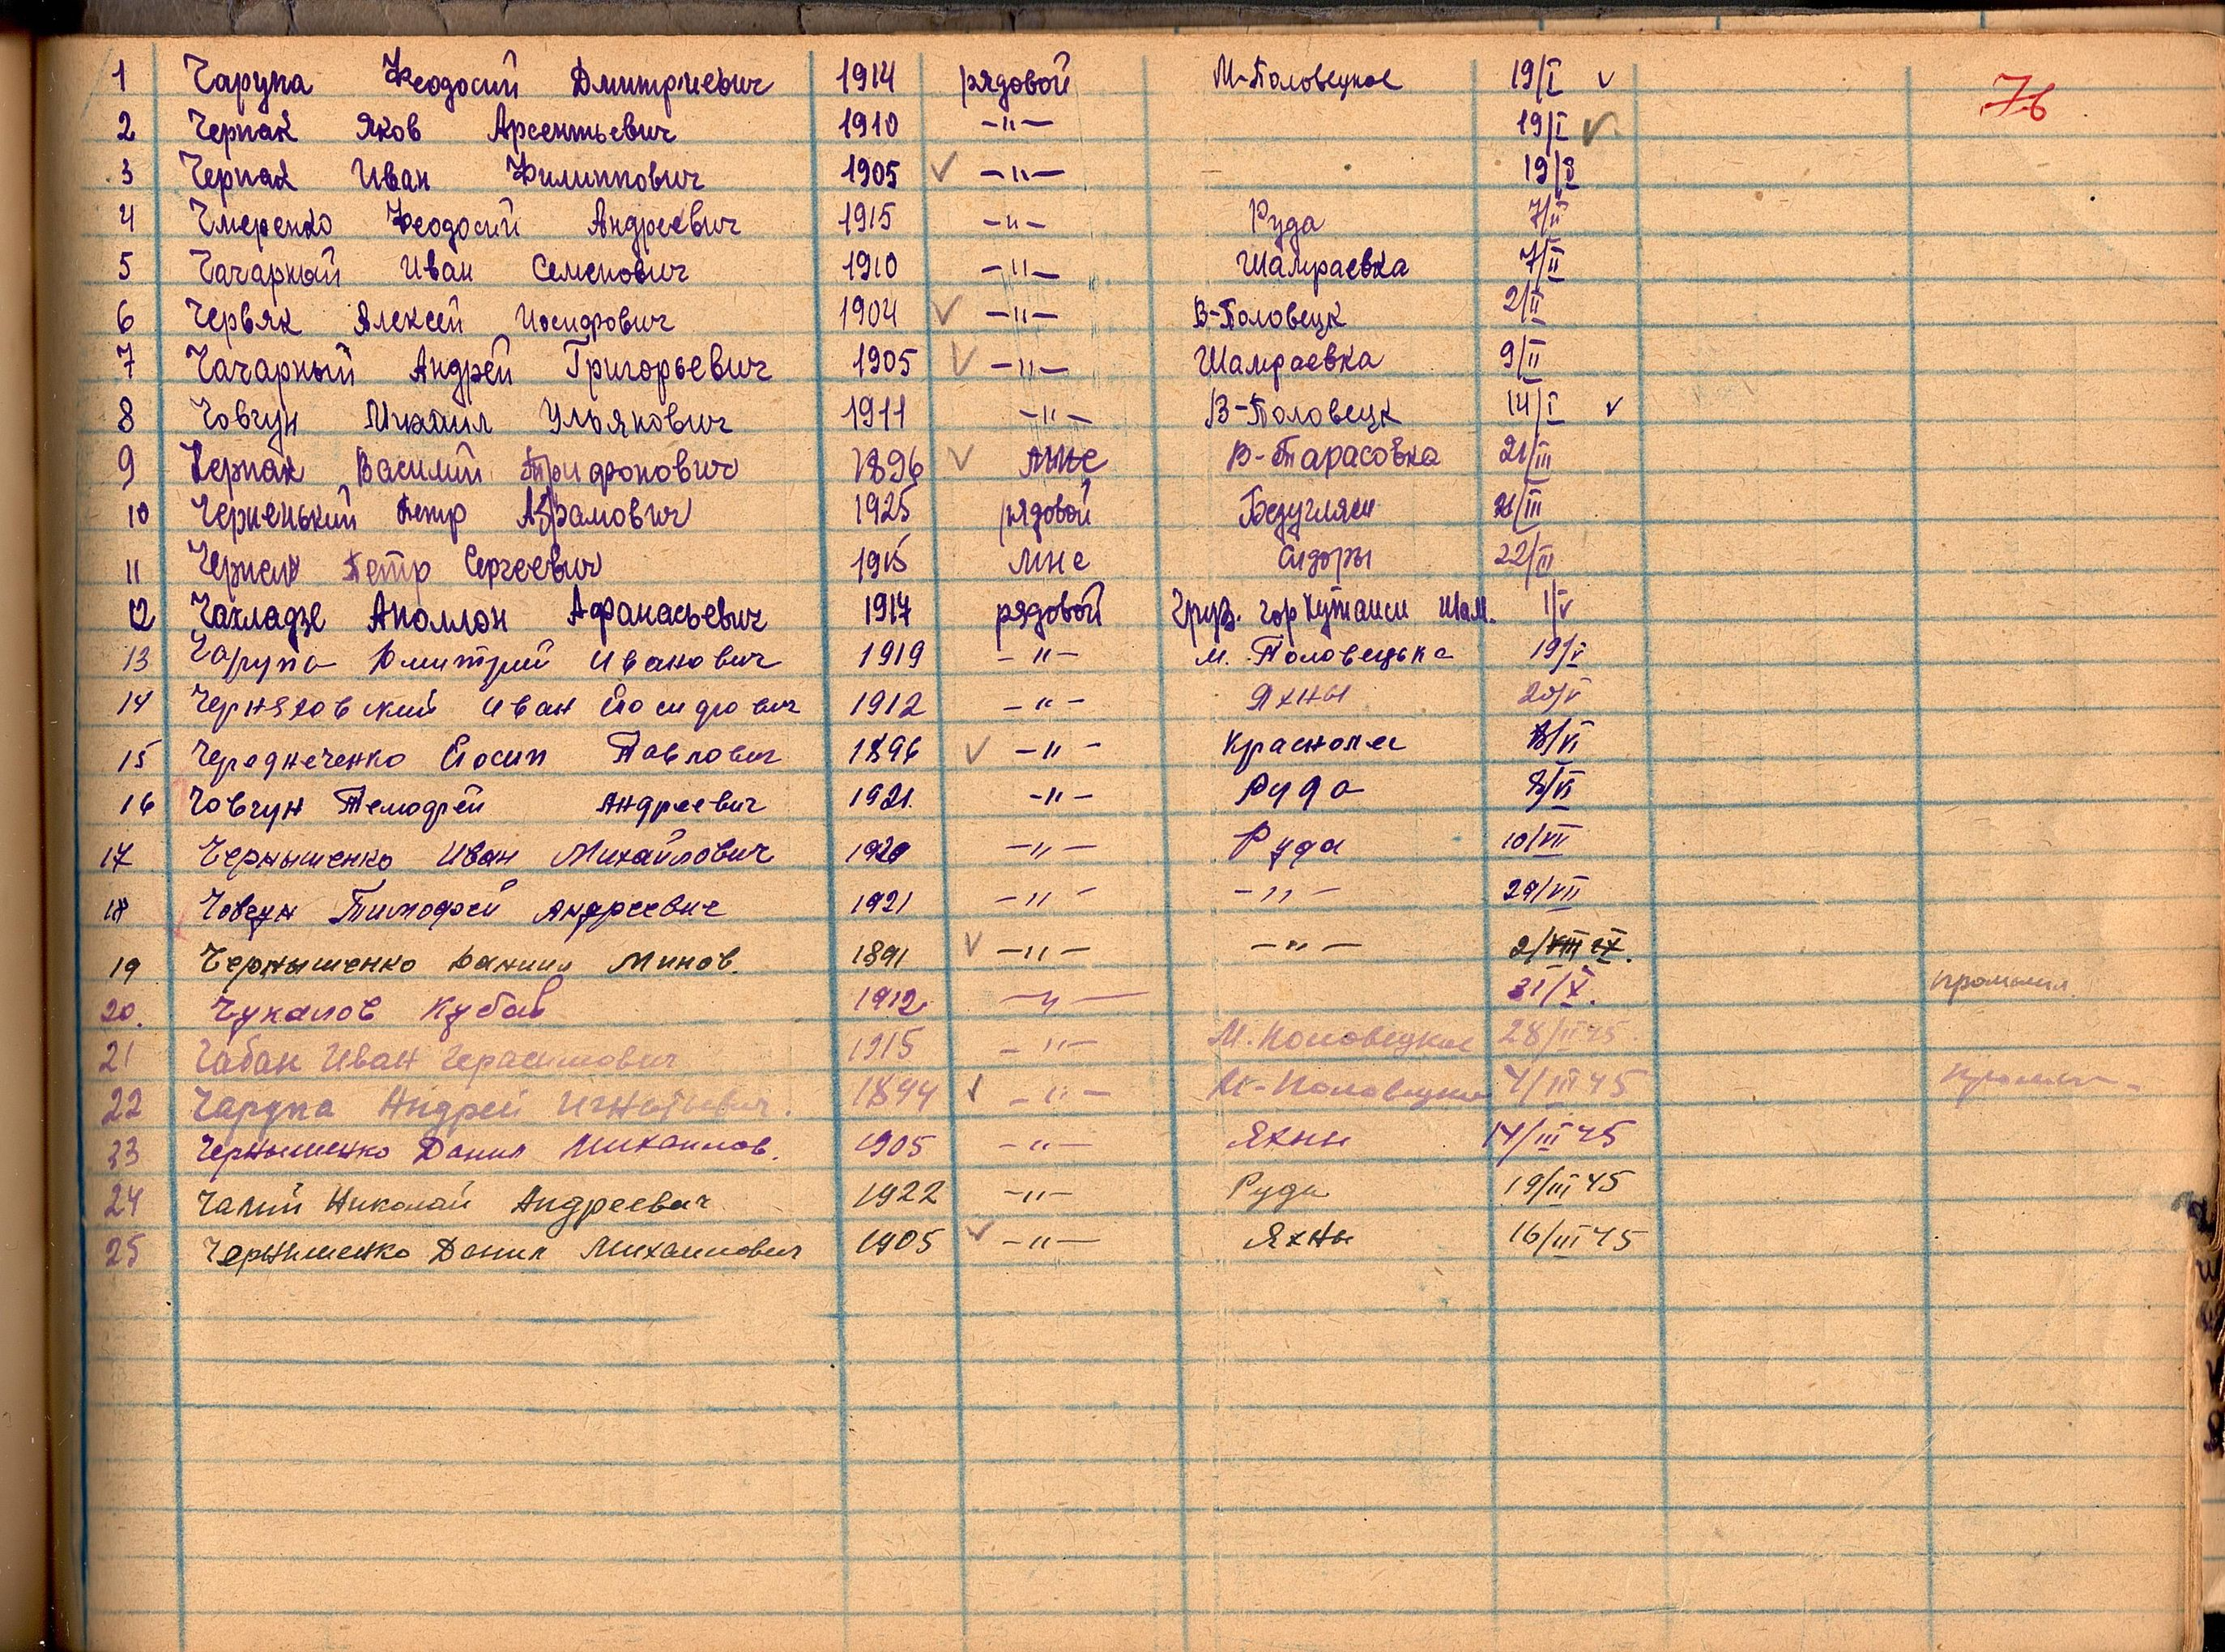 76
1 Чарупа Феодосий Дмитриевич 1914 рядовой М-Половецкое 19/I v
2 Черпак Яков Арсентьевич 1910 —"— 19/I v
3 Черпак Иван Филиппович 1905 v —"— - 19/I
4 Чмеренко Феодосий Андреевич 1915 —"— Руда 7/II
5 Чачарный Иван Семенович 1910 —"— Шамраевка 7/II
6 Червяк Алексей Иосифович 1904 v —"— В-Половецк 2/II
7 Чачарный Андрей Григорьевич 1905 v —"— Шамраевка 9/II
8 Човгун Михаил Ульянович 1911 —"— В-Половецк 14/I v
9 Черпак Василий Трифонович 1896 v мнс В-Тарасовка 21/III
10 Черненький Петр Абрамович 1925 рядовой Безугляки 21/III
11 Петр Сергеевич 1915 мнс Сидоры 22/III
12 Чахладзе Аполлон Афанасьевич 1917 рядовой Груз. гор Кутаиси Шам. 1/V
13 Чарупа Дмитрий Иванович 1919 —"— М. Половецька 19/V
14 Черняховский Иван Йосифович 1912 —"— Яхны 20/V
15 Чередниченко Йосип Павлович 1896 v —"— Краснолес /VI
16 Човгун Темофей Андреевич 1921. —"— Руда 8/VI
17 Чернышенко Иван Михайлович 1920 —"— Руда 10/VII
18 Човгун Тимофей Андреевич 1921 —"— —"— 29/VII
19 Чернышенко Данило Минов. 1891 v —"— —"— 2/VIII IX.
20. Чукалов Кубай 1912 —"— 31/X.
21 Чабан Иван Герасимович 1915 —"— М. Половецкое 28/II 45.
22 Чарупа Андрей Игнатьевич. 1894 v —"— М-Половецкое 7/III 45
23 Чернышенко Данил Михаилов. 1905 —"— Яхны 14/III 45
24 Чалый Николай Андреевич 1922 —"— Руда 19/III 45
25 Чернышенко Данил Михаилович 1905 v —"— Яхны 16/III 45